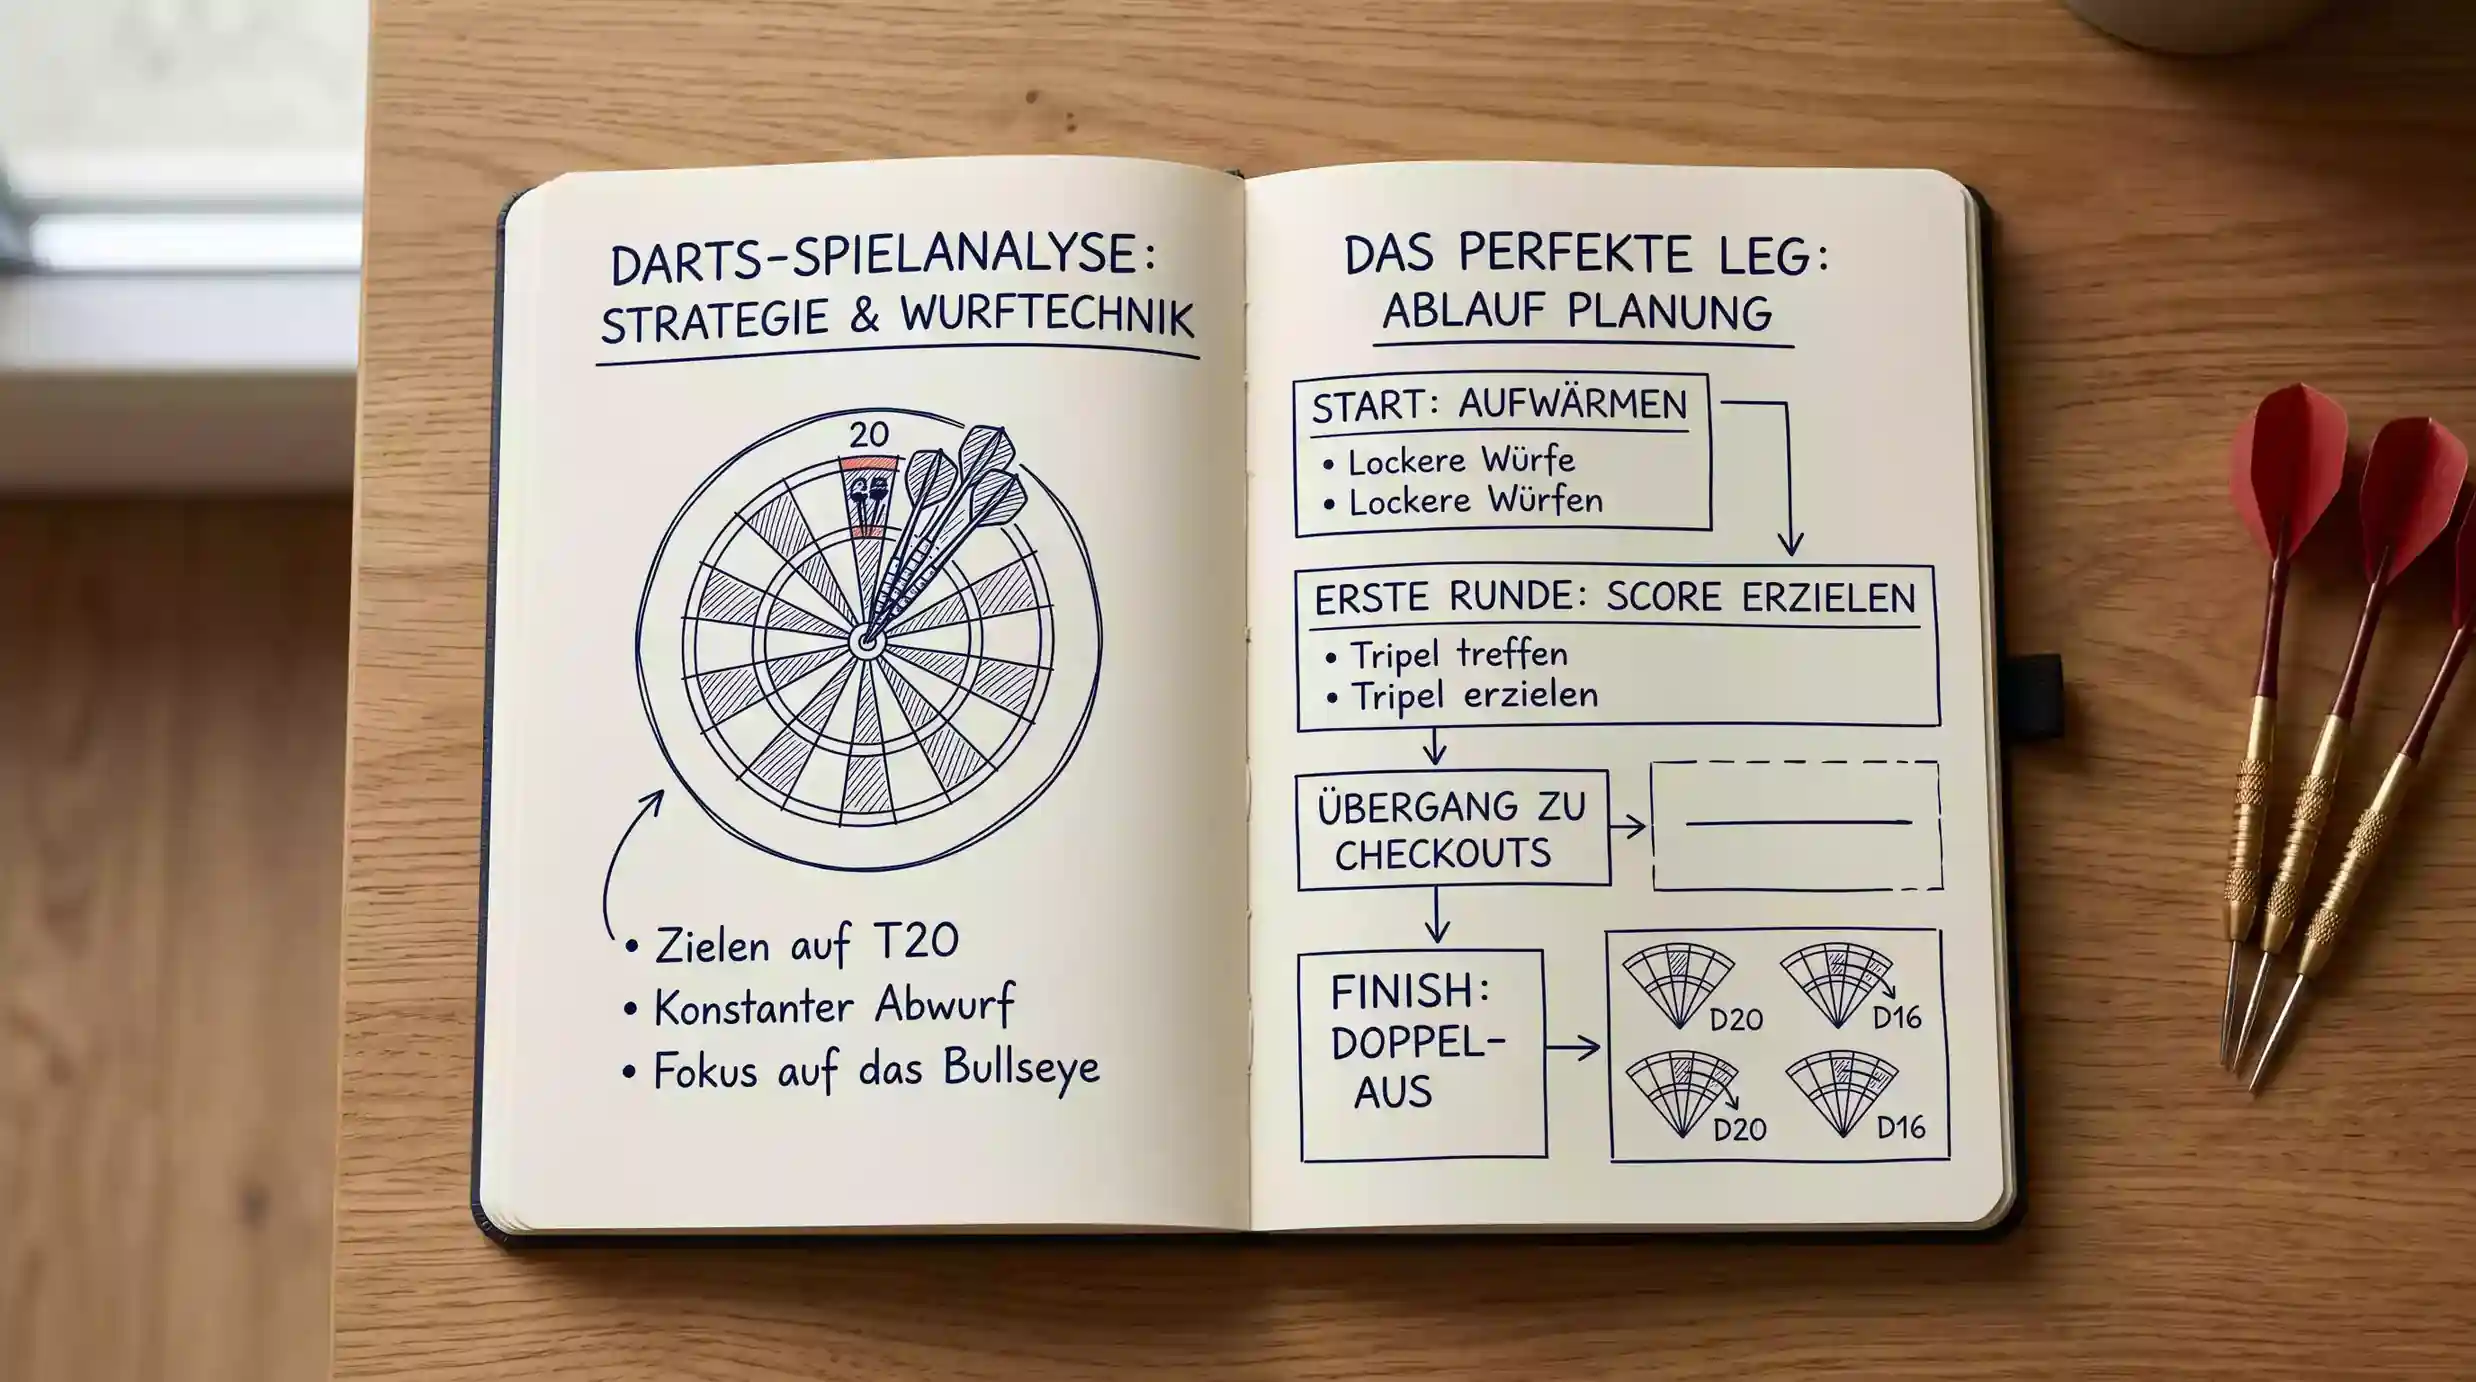 DARTS-SPIELANALYSE:
STRATEGIE & WURFTECHNIK
20
• Zielen auf T20
• Konstanter Abwurf
• Fokus auf das Bullseye
DAS PERFEKTE LEG:
ABLAUF PLANUNG
START: AUFWÄRMEN
• Lockere Würfe
• Lockere Würfen
ERSTE RUNDE: SCORE ERZIELEN
• Tripel treffen
• Tripel erzielen
ÜBERGANG ZU
CHECKOUTS
FINISH:
DOPPEL-
AUS
D20
D16
D20
D16